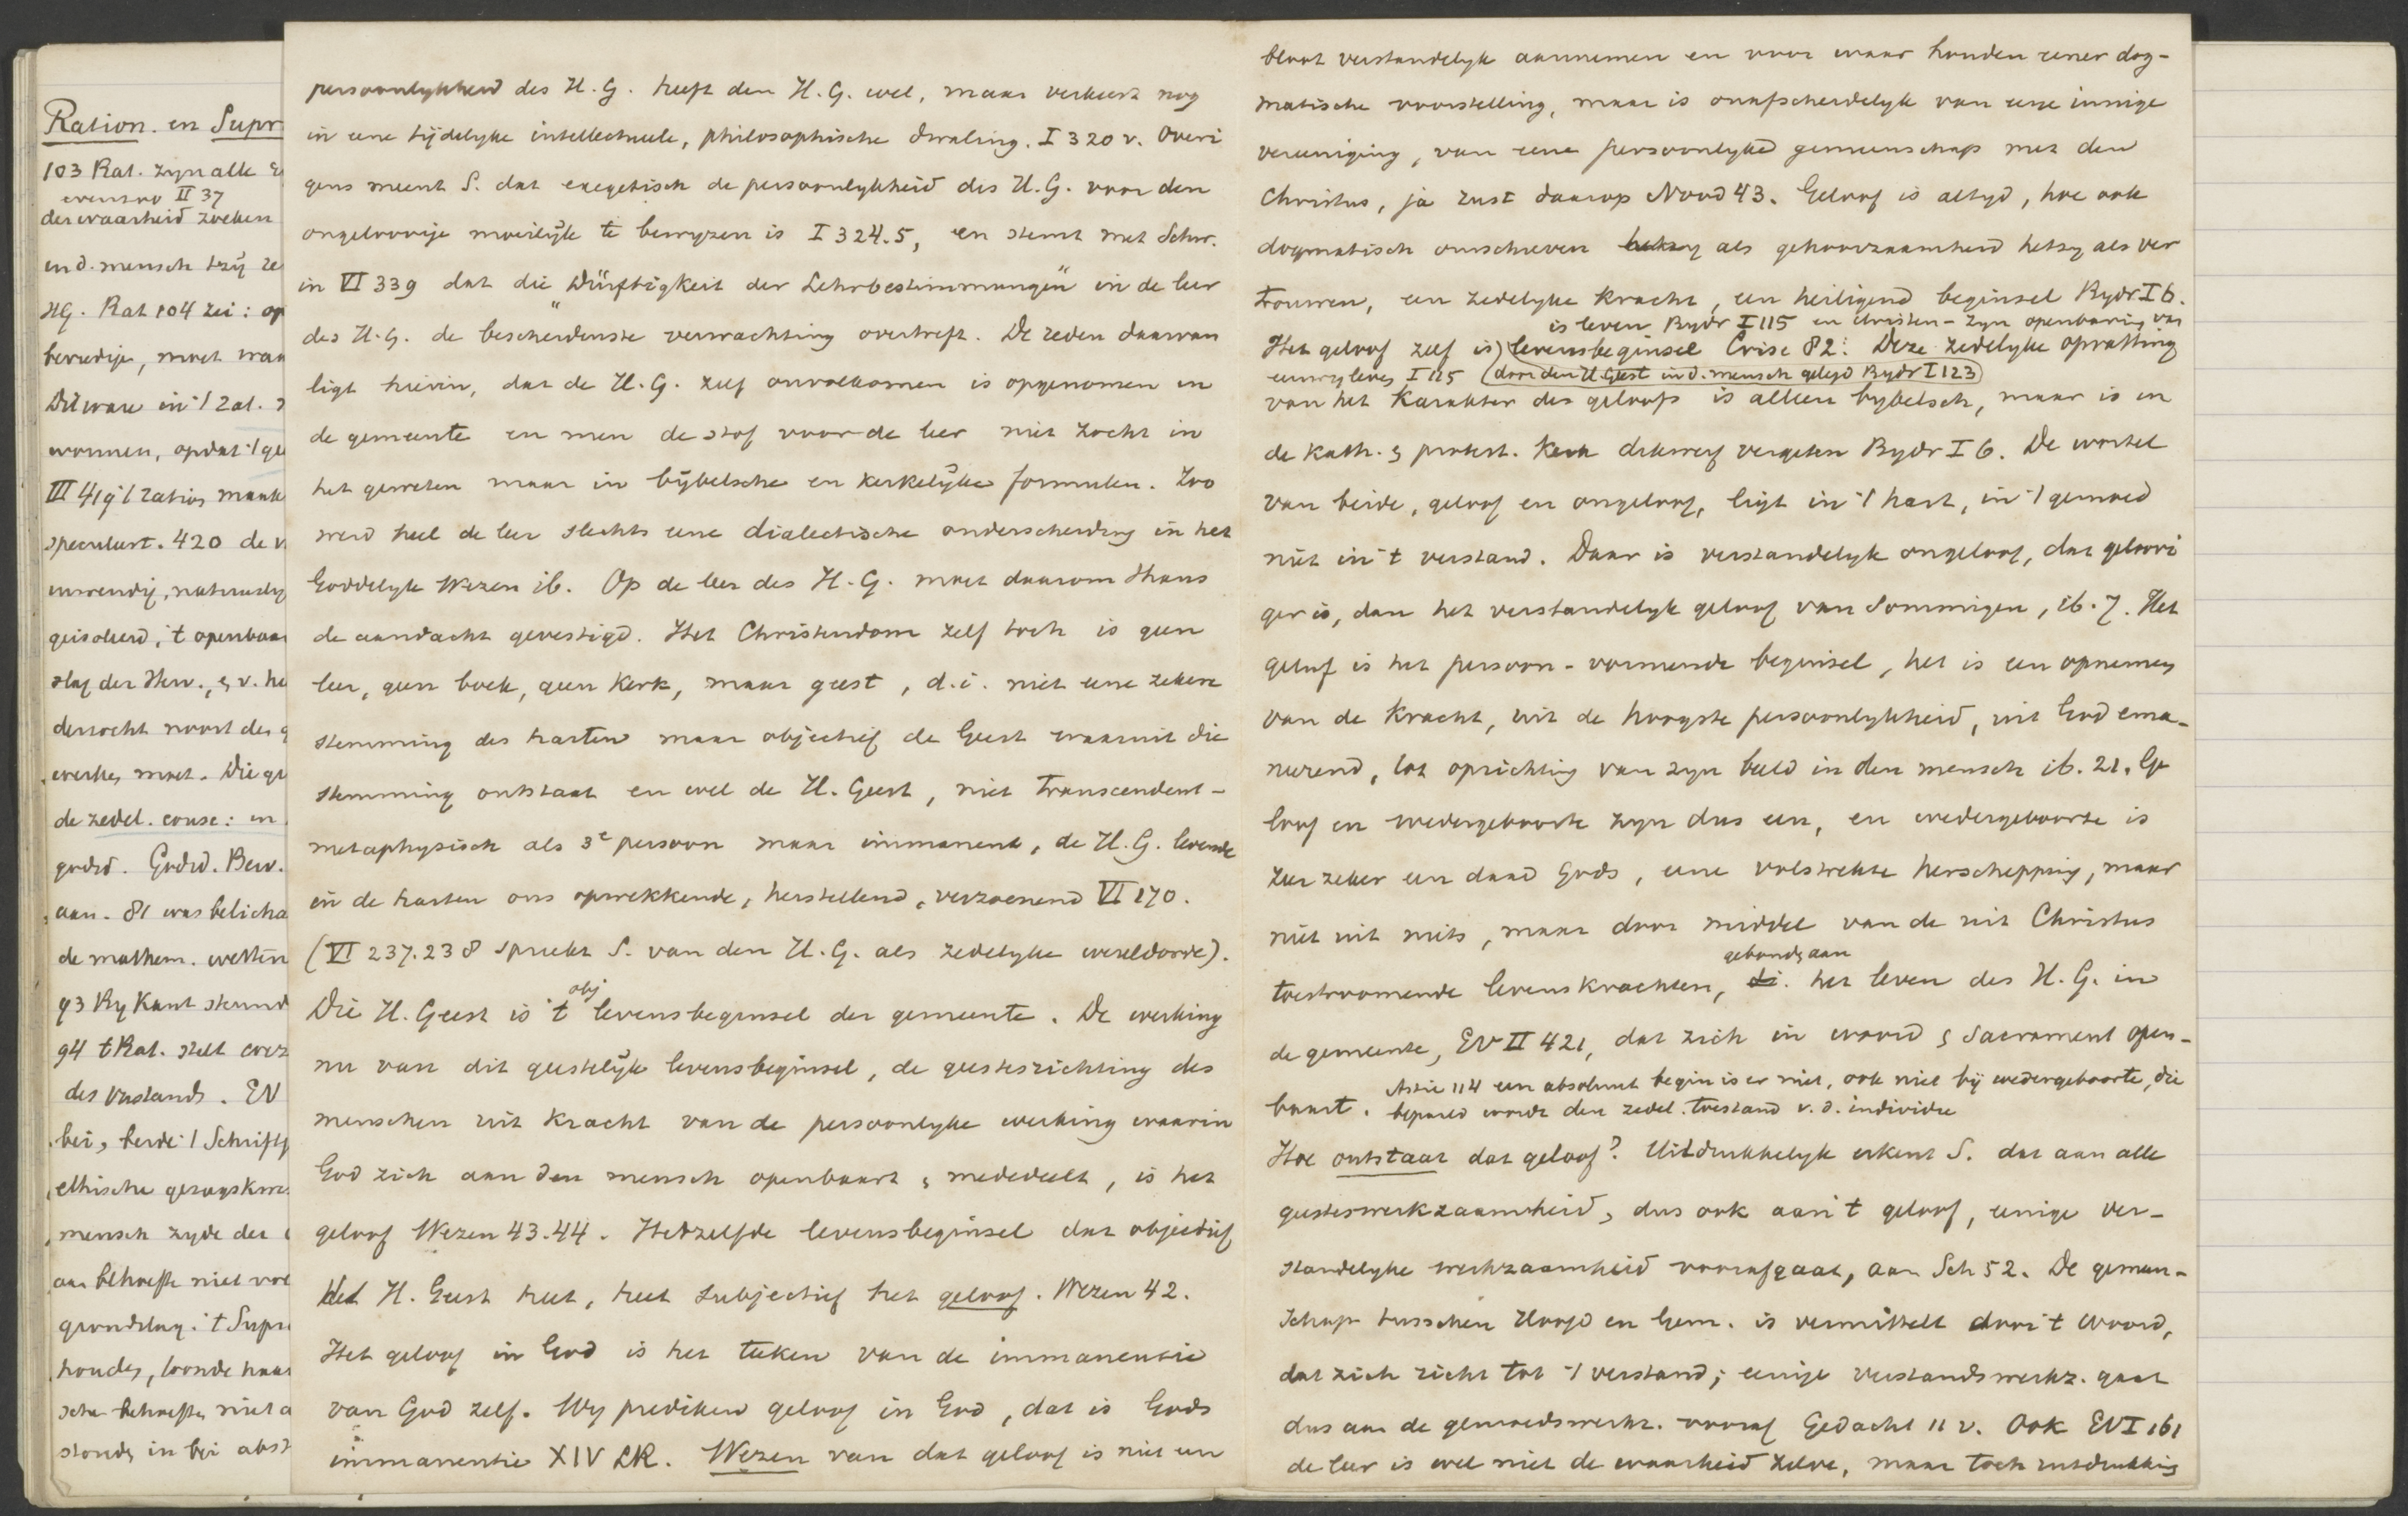 Ration. en Supr
103 Rat. zyn alle
evenzoo II 37
der waarheid zoeken
en d. mensch tzij
HG. Rat 104 zei: op
bevredige, moet
Dit ware in 't rat.
wonnen, opdat 't ge
III 419 't ratio maak
speculeert. 420 de
inwendig,
't openbaar
der Herv.
de zedel. consc: en
godsd. Godsd. Bew.
aan. 81 was belicha
de mathem. wetten
93 By Kant
94 t Rat. stelt
des verstands. EV
beide 't Schrift
ethische
mensch zyde der
aan behoefte niet vol
grondslag. 't Supr
houden, toonde haar
behoeften niet a
stonds in bei abst
persoonlykheid des H. G. heeft den H. G. wel, maar verkeert nog
in eene tijdelyke intellectueele, philosophische dwaling. I 320 v. Overi
gens meent S. dat exegetisch de persoonlykheid des H. G. voor den
ongeloovige moeilijk te bewyzen is I 324.5, en stemt met Schw.
in VI 339 dat die "Dürftigkeit der Lehrbestimmungen" in de leer
des H. G. de bescheidenste verwachting overtreft. De reden daarvan
ligt hierin, dat de H. G. zelf onvolkomen is opgenomen in
de gemeente en men de stof voor de leer niet zocht in
het geweten maar in bijbelsche en kerkelijke formulen. Zoo
werd heel de leer slechts eene dialectische onderscheiding in het
Goddelyk Wezen ib. Op de leer des H. G. moet daarom thans
de aandacht gevestigd. Het Christendom zelf toch is geen
leer, geen boek, geen Kerk, maar geest, d.i. niet eene zekere
stemming des harten maar objectief de Geest waaruit die
stemming ontstaat en wel de H. Geest, niet transcendent-
metaphysisch als 3e persoon maar immanent, de H. G. levende
in de harten ons opwekkende, herstellend, verzoenend VI 170.
(VI 237.238 spreekt S. van den H. G. als zedelyke wereldorde).
obj
Die H. Geest is 't levensbeginsel der gemeente. De werking
nu van dit geestelijk levensbeginsel, de geestesrichting des
menschen uit kracht van de persoonlyke werking waarin
God zich aan den mensch openbaart & mededeelt, is het
geloof Wezen 43.44. Hetzelfde levensbeginsel dat objectief
H. Geest heet, heet subjectief het geloof. Wezen 42.
Het geloof in God is het teeken van de immanentie
van God zelf. Wy prediken geloof in God, dat is Gods
immanentie XIV LR. Wezen van dat geloof is niet een
bloot verstandelyk aannemen en voor waar houden eener dog-
matische voorstelling, maar is onafscheidelyk van eene innige
vereeniging, van eene persoonlyke gemeenschap met den
Christus, ja rust daarop Nood 43. Geloof is altyd, hoe ook
dogmatisch omschreven hetzy als gehoorzaamheid hetzy als ver
trouwen, een zedelyke kracht, een heiligend beginsel Bydr I 6.
is leven Bydr I 115 en Christen-zyn openbaring van
Het geloof zelf is levensbeginsel Crise 82: Deze zedelyke opvatting
eeuwig leven I 115 (door den H Geest in d. mensch gelegd Bydr I 123)
van het karakter des geloofs is alleen bybelsch, maar is in
de Kath. & protest. Kerk dikwerf vergeten Bydr I 6. De wortel
van beide, geloof en ongeloof, ligt in 't hart, in 't gemoed
niet in 't verstand. Daar is verstandelyk ongeloof, dat geloovi
ger is, dan het verstandelyk geloof van Sommigen, ib. 7. Het
geloof is het persoon-vormende beginsel, het is een opnemen
van de kracht, uit de hoogste persoonlykheid, uit God ema-
neerend, tot oprichting van zyn beeld in den mensch ib. 21. Ge
loof en wedergeboorte zyn dus een, en wedergeboorte is
zeer zeker een daad Gods, eene volstrekte herschepping, maar
niet uit niets, maar door middel van de uit Christus
gebonden aan
toestroomende levenskrachten, di. het leven des H. G. in
de gemeente, EV II 421, dat zich in woord & Sacrament open-
baart. Astié 114 een absoluut begin is er niet, ook niet bij wedergeboorte, die
bepaald wordt den zedel. toestand v. d. individu
Hoe ontstaat dat geloof? Uitdrukkelyk erkent S. dat aan alle
geesteswerkzaamheid, dus ook aan 't geloof, eenige ver-
standelyke werkzaamheid voorafgaat, aan Sch 52. De gemeen-
schap tusschen Hoofd en Gem. is vermittelt door 't woord,
dat zich richt tot 't verstand; eenige verstandswerkz. gaat
dus aan de gemoedswerkz. vooraf Gedacht 11 v. Ook EV I 161
de leer is wel niet de waarheid zelve, maar toch uitdrukking